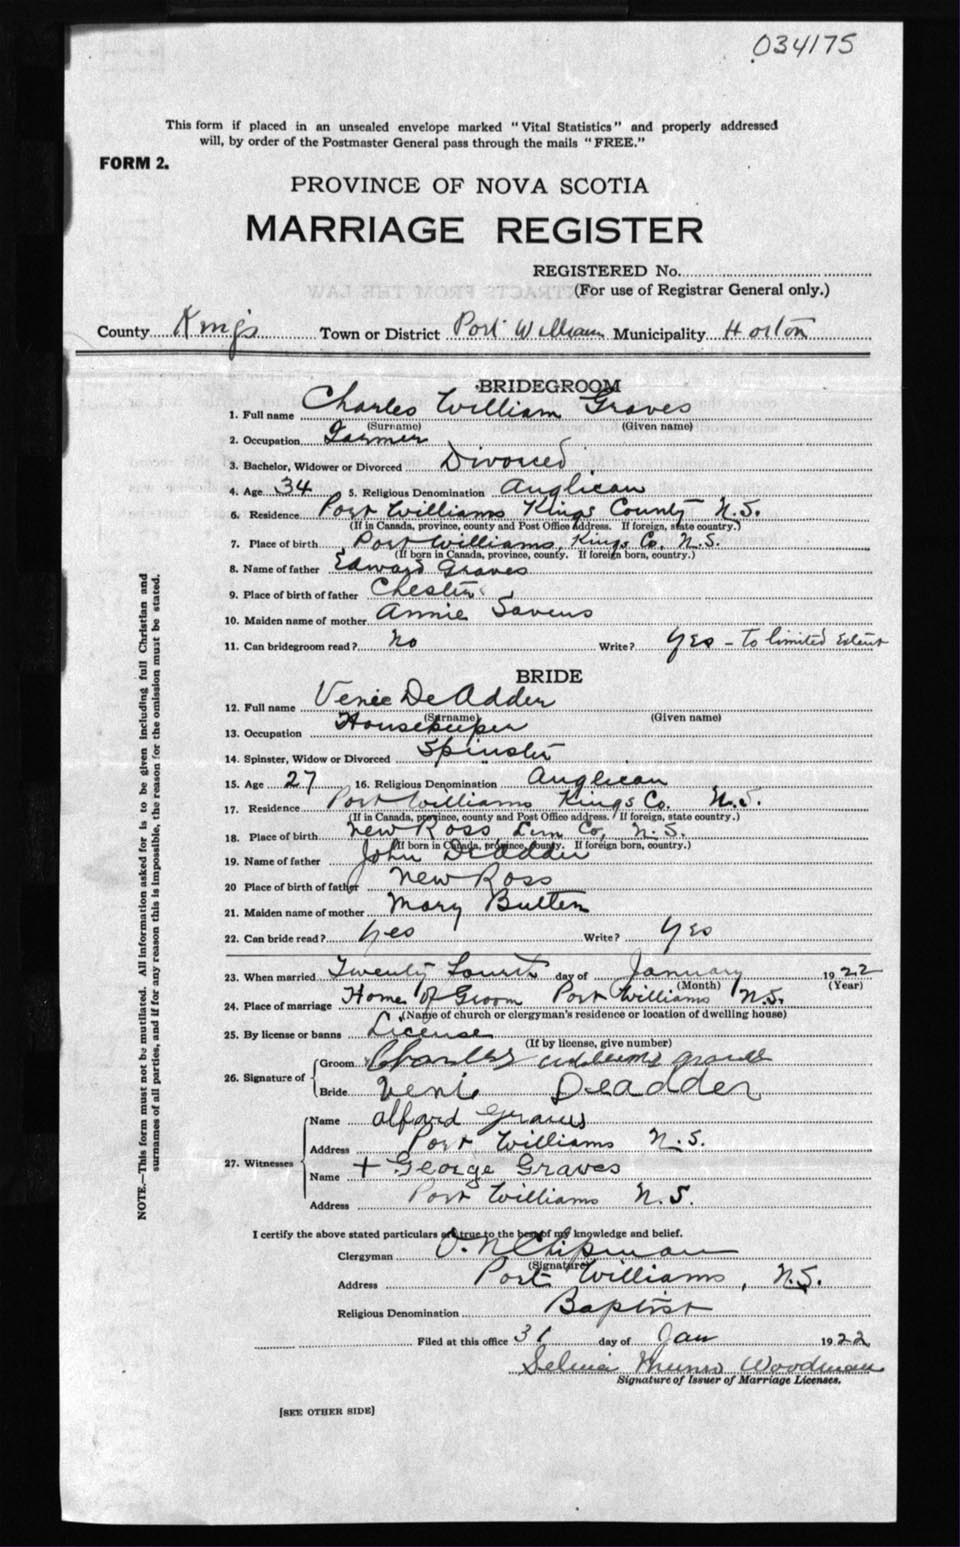 034175
This form if placed in an unsealed envelope marked "Vital Statistics" and properly addressed
will, by order of the Postmaster General pass through the mails "FREE."
FORM 2.
PROVINCE OF NOVA SCOTIA
MARRIAGE REGISTER
REGISTERED No.
(For use of Registrar General only.)
County Kings Town or District Port William Municipality Horton
BRIDEGROOM
1. Full name Charles William Graves
(Surname) (Given name)
2. Occupation Farmer
3. Bachelor, Widower or Divorced Divorced
4. Age 34 5. Religious Denomination Anglican
6. Residence Port Williams Kings County N.S.
(If in Canada, province, county and Post Office address. If foreign, state country.)
7. Place of birth Port Williams, Kings Co, N.S.
(If born in Canada, province, county. If foreign born, country.)
8. Name of father Edward Graves
9. Place of birth of father Chester
10. Maiden name of mother Annie
11. Can bridegroom read? No Write? Yes - To limited Extent
BRIDE
12. Full name Venie DeAdder
(Surname) (Given name)
13. Occupation Housekeeper
14. Spinster, Widow or Divorced Spinster
15. Age 27 16. Religious Denomination Anglican
17. Residence Port Williams Kings Co. N.S.
(If in Canada, province, county and Post Office address. If foreign, state country.)
18. Place of birth New Ross Lun Co, N.S.
(If born in Canada, province, county. If foreign born, country.)
19. Name of father John DeAdder
20 Place of birth of father New Ross
21. Maiden name of mother Mary
22. Can bride read? Yes Write? Yes
23. When married Twenty Fourth day of January 1922
(Month) (Year)
24. Place of marriage Home of Groom Port Williams N.S.
(Name of church or clergyman's residence or location of dwelling house)
25. By license or banns License
(If by license, give number)
26. Signature of Groom Charles Graves
Bride Veni Deadder
27. Witnesses Name Graves
Address Port Williams N.S.
Name + George Graves
Address Port Williams N.S.
I certify the above stated particulars are true to the best of my knowledge and belief.
Clergyman O. N Chipman
(Signature)
Address Port Williams, N.S.
Religious Denomination Baptist
Filed at this office 31 day of Jan 1922
Selina Munro Woodman
Signature of Issuer of Marriage Licenses.
[SEE OTHER SIDE]
NOTE.—This form must not be mutilated. All information asked for is to be given including full Christian and
surnames of all parties, and if for any reason this is impossible, the reason for the omission must be stated.